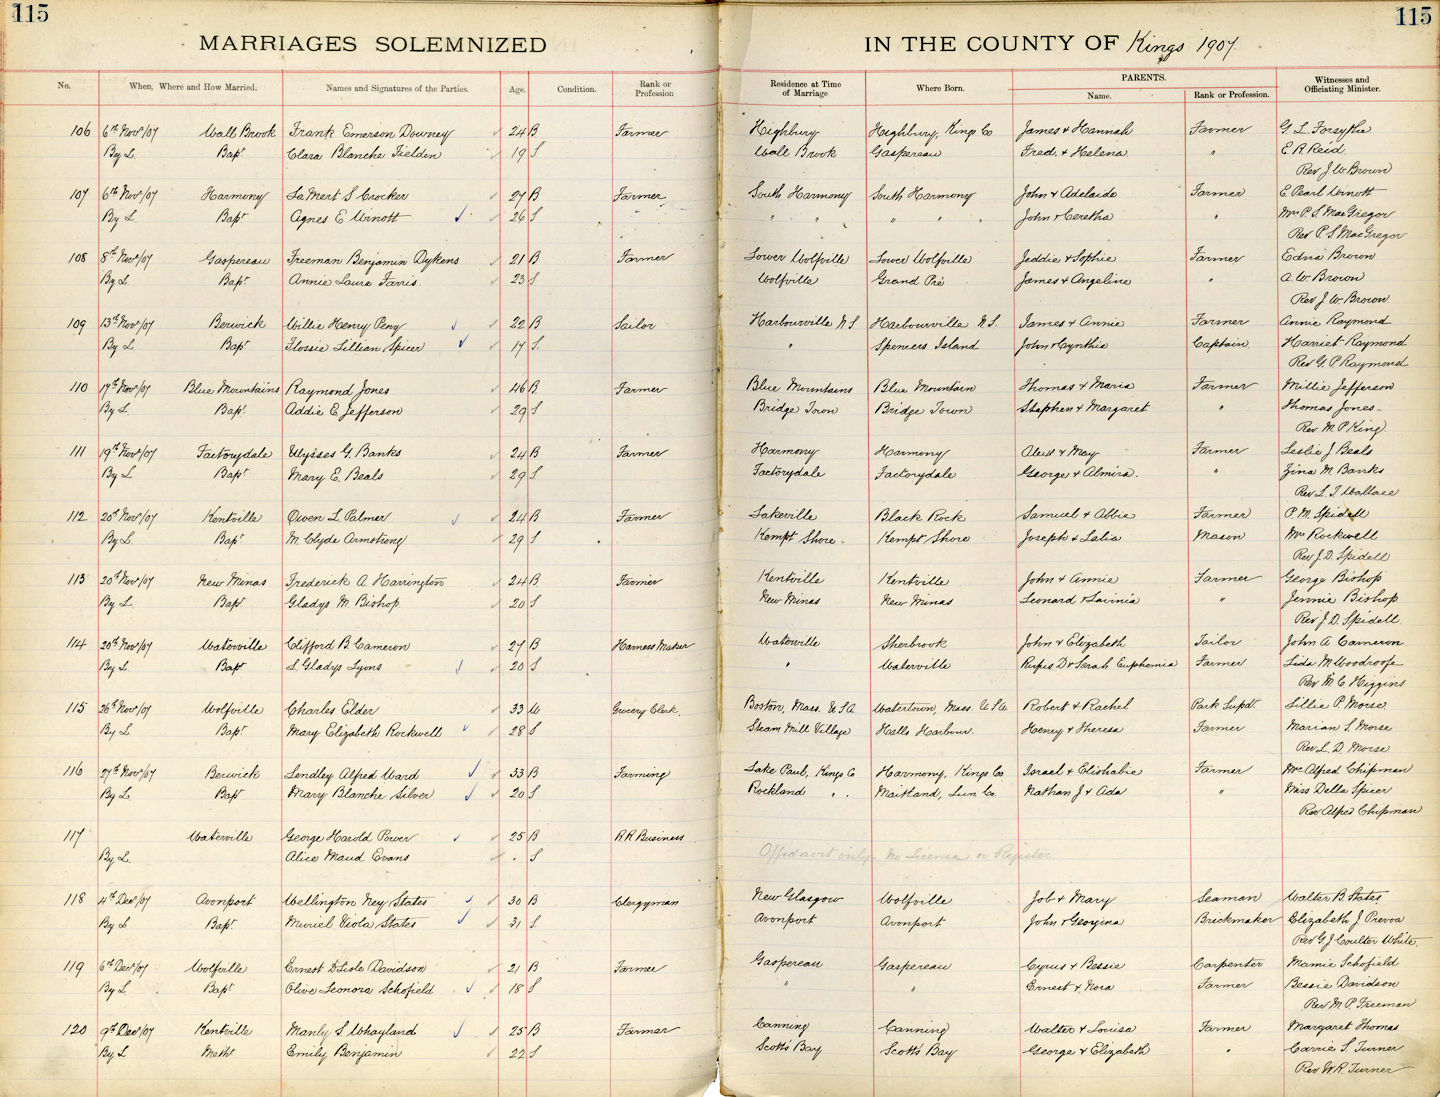 115 115
MARRIAGES SOLEMNIZED IN THE COUNTY OF Kings 1907.
No. When, Where and How Married. Names and Signatures of the Parties. Age. Condition. Rank or Profession Residence at Time of Marriage Where Born. PARENTS. Name. Rank or Profession. Witnesses and Officiating Minister.
106 6th Nov/07 Wall Brook Frank Emerson Downey 24 B Farmer Highbury Highbury, Kings Co James & Hannah Farmer G. L. Forsythe
By L. Bapt Clara Blanche Fielden 19 S Wall Brook Gaspereau Fred. & Helena " E. R. Reid
Rev J. W. Brown
107 6th Nov/07 Harmony LaMert S Crocker 27 B Farmer South Harmony South Harmony John & Adelaide Farmer E. Pearl Wrnott
By L. Bapt Agnes E Wrnott 26 S " " " " John & Ceretha " Mrs P. S. MacGregor
Rev P. S. MacGregor
108 8th Nov/07 Gaspereau Freeman Benjamin Dykens 21 B Farmer Lower Wolfville Lower Wolfville Jeddie & Sophie Farmer Edna Brown
By L. Bapt Annie Laura Farris. 23 S Wolfville Grand Pré James & Angeline " A. W. Brown
Rev J. W. Brown
109 13th Nov/07 Berwick Willie Henry Peny 22 B Sailor Harbourville N S Harbourville N. S. James & Annie Farmer Annie Raymond
By L. Bapt Flossie Lillian Spicer 17 S. " Spencers Island John & Cynthia Captain Harriet Raymond
Rev G. P. Raymond
110 17th Nov/07 Blue Mountains Raymond Jones 46 B Farmer Blue Mountains Blue Mountain Thomas & Maria Farmer Millie Jefferson
By L. Bapt Addie E. Jefferson 29 S Bridge Town Bridge Town Stephen & Margaret " Thomas Jones
Rev. M. P. King
111 19th Nov/07 Factorydale Ulysses G. Banks 24 B Farmer Harmony Harmony & May Farmer Leslie J Beals
By L Bapt Mary E. Beals 29 S Factorydale Factorydale George & Almira. " Zina M. Banks
Rev L. J Wallace
112 20th Nov/07 Kentville Owen L Palmer 24 B Farmer Lakeville Black Rock Samuel & Abbie Farmer P. M. Spidell
By L. Bapt M. Clyde Armstrong 29 S Kempt Shore. Kempt Shore Joseph & Lalia Mason Mrs Rockwell
Rev J. D. Spidell
113 20th Nov/07 New Minas Frederick A Harrington 24 B Farmer Kentville Kentville John & Annie Farmer George Bishop
By L. Bapt Gladys M. Bishop. 20 S New Minas New Minas Leonard & Lavinia " Jennie Bishop
Rev J. D. Spidell.
114 20th Nov/07 Waterville Clifford B. Cameron 27 B Harness Maker Waterville Sherbrook John & Elizabeth Tailor John A Cameron
By L Bapt L Gladys Lyons 20 S " Waterville Rufus D & Sarah Euphemia Farmer Lida M Woodroofe
Rev M. C Higgins
115 26th Nov/07 Wolfville Charles Elder 33 W Grocery Clerk. Boston, Mass. U S A Watertown, Mass. U S A Robert & Rachel Park Supdt Lillie P Morse
By L. Bapt Mary Elizabeth Rockwell 28 S Steam Mill Village Halls Harbour. Henry & Theresa Farmer Marian S. Morse
Rev L. D. Morse
116 27th Nov/07 Berwick Lendley Alfred Ward 33 B Farming Lake Paul, Kings C Harmony, Kings Co Israel & Elishabie Farmer Mrs Alfred Chipman
By L. Bapt Mary Blanche Silver 20 S Rockland " . Maitland, Lun. Co. Nathan J & Ada " Miss Della Spicer
Rev Alfred Chipman
117 Waterville George Harold Power 25 B R R Business
By L. Alice Maud Evans . S Affidavit only no License or Register
118 4th Dec/07 Avonport Wellington Ney States 30 B Clergyman New Glasgow Wolfville Job & Mary Seaman Walter B. States
By L Bapt. Muriel Viola States 31 S Avonport Avonport John & Georgina Brickmaker Elizabeth J Prevoa
Rev G J Coulter White.
119 6th Dec/07 Wolfville Ernest DeLisle Davidson 21 B Farmer Gaspereau Gaspereau Cyrus & Bessie Carpenter Mamie Schofield
By L Bapt Olive Leonora Schofield 18 S " " Ernest & Nora Farmer Bessie Davidson
Rev M. P. Freeman
120 9th Dec/07 Kentville Manly S. Whayland 25 B Farmer Canning Canning Walter & Louisa Farmer Margaret Thomas
By L Metht Emily Benjamin 22 S Scotts Bay Scotts Bay George & Elizabeth " Carrie S Turner
Rev W. R. Turner